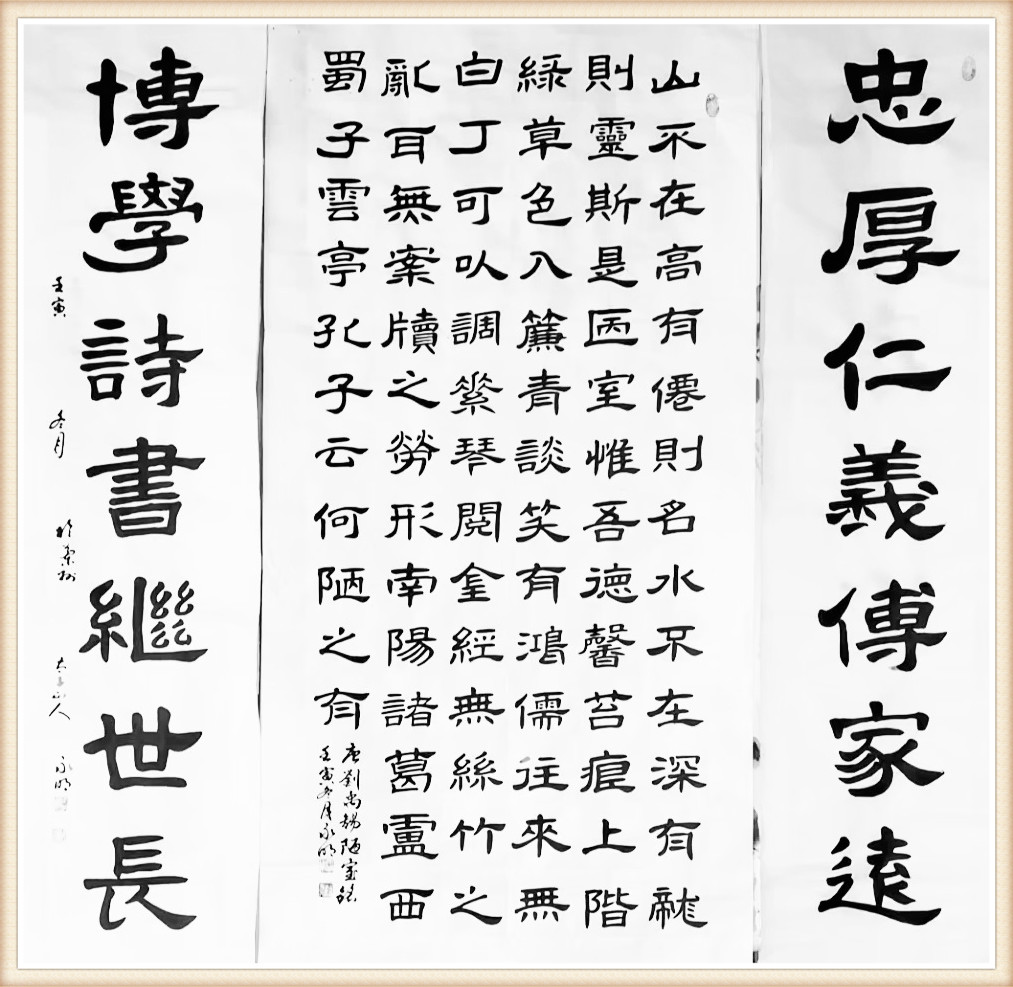 忠厚仁義傳家遠
山不在高有僊則名水不在深有龍
則靈斯是陋室惟吾德馨苔痕上階
綠草色入簾青談笑有鴻儒往來無
白丁可以調素琴閱金經無絲竹之
亂耳無案牘之勞形南陽諸葛廬西
蜀子雲亭孔子云何陋之有
唐劉禹錫陋室銘
壬寅冬月永明
博學詩書繼世長
壬寅冬月於山人永明